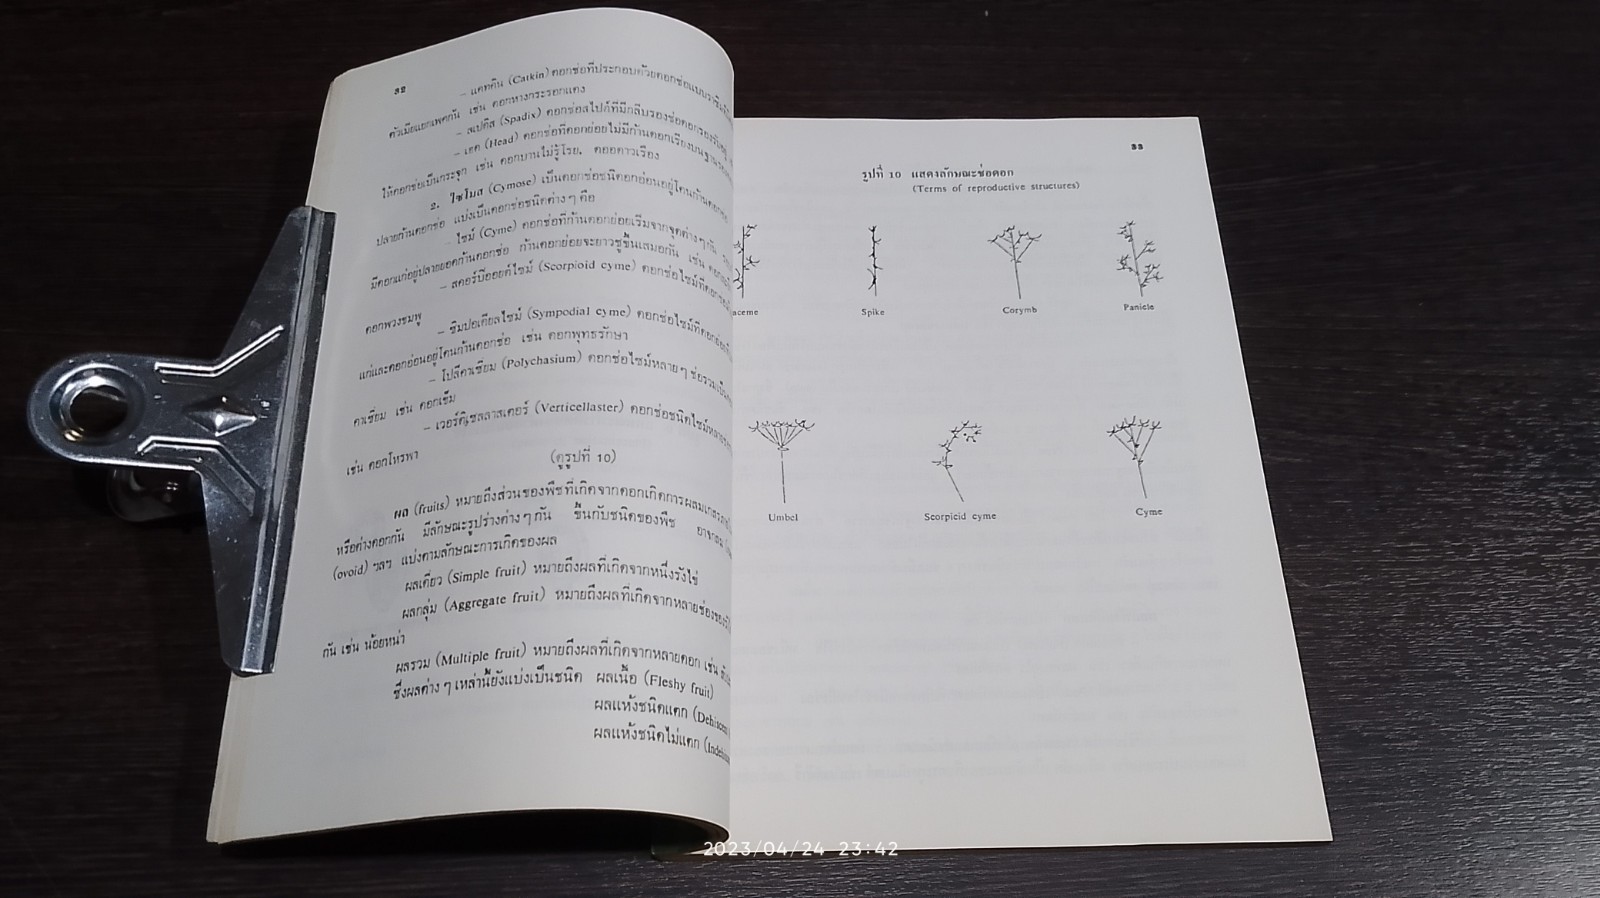 32
- แคทคิน (Catkin) ดอกช่อที่ประกอบด้วยดอกช่อแบบ
ตัวเมียแยกเพศกัน เช่น ดอกหางกระรอกแดง
- สเปดิส (Spadix) ดอกช่อสไปค์ที่มีกลีบรองช่อดอกรองรับ
- เฮด (Head) ดอกช่อที่ดอกย่อยไม่มีก้านดอกเรียงบนฐาน
ให้ดอกช่อเป็นกระจุก เช่น ดอกบานไม่รู้โรย, ดอกดาวเรือง
2. ไซโมส (Cymose) เป็นดอกช่อชนิดดอกอ่อนอยู่โคนก้านดอก
ปลายก้านดอกช่อ แบ่งเป็นดอกช่อชนิดต่าง ๆ คือ
- ไซม์ (Cyme) ดอกช่อที่ก้านดอกย่อยเริ่มจากจุดต่าง ๆ กัน
มีดอกแก่อยู่ปลายยอดก้านดอกช่อ ก้านดอกย่อยจะยาวชูขึ้นเสมอกัน เช่น
- สคอร์ปิออยด์ไซม์ (Scorpioid cyme) ดอกช่อไซม์ที่ดอก
ดอกพวงชมพู
- ซิมปอเดียลไซม์ (Sympodial cyme) ดอกช่อไซม์ที่ดอก
แก่และดอกอ่อนอยู่โคนก้านดอกช่อ เช่น ดอกพุทธรักษา
- โปลีคาเซียม (Polychasium) ดอกช่อไซม์หลาย ๆ ช่อรวมเป็น
คาเซียม เช่น ดอกเข็ม
- เวอร์ติเซลลาสเตอร์ (Verticellaster) ดอกช่อชนิดไซม์หลาย
เช่น ดอกโหรพา
(ดูรูปที่ 10)
ผล (fruits) หมายถึงส่วนของพืชที่เกิดจากดอกเกิดการผสมเกสร
หรือต่างดอกกัน มีลักษณะรูปร่างต่าง ๆ กัน ขึ้นกับชนิดของพืช
(ovoid) ฯลฯ แบ่งตามลักษณะการเกิดของผล
ผลเดี่ยว (Simple fruit) หมายถึงผลที่เกิดจากหนึ่งรังไข่
ผลกลุ่ม (Aggregate fruit) หมายถึงผลที่เกิดจากหลายช่องของ
กัน เช่น น้อยหน่า
ผลรวม (Multiple fruit) หมายถึงผลที่เกิดจากหลายดอก เช่น
ซึ่งผลต่าง ๆ เหล่านี้ยังแบ่งเป็นชนิด ผลเนื้อ (Fleshy fruit)
ผลแห้งชนิดแตก
ผลแห้งชนิดไม่แตก
33
รูปที่ 10 แสดงลักษณะช่อดอก
(Terms of reproductive structures)
aceme Spike Corymb Panicle
Umbel Scorpicid cyme Cyme
2023/04/24 23:42